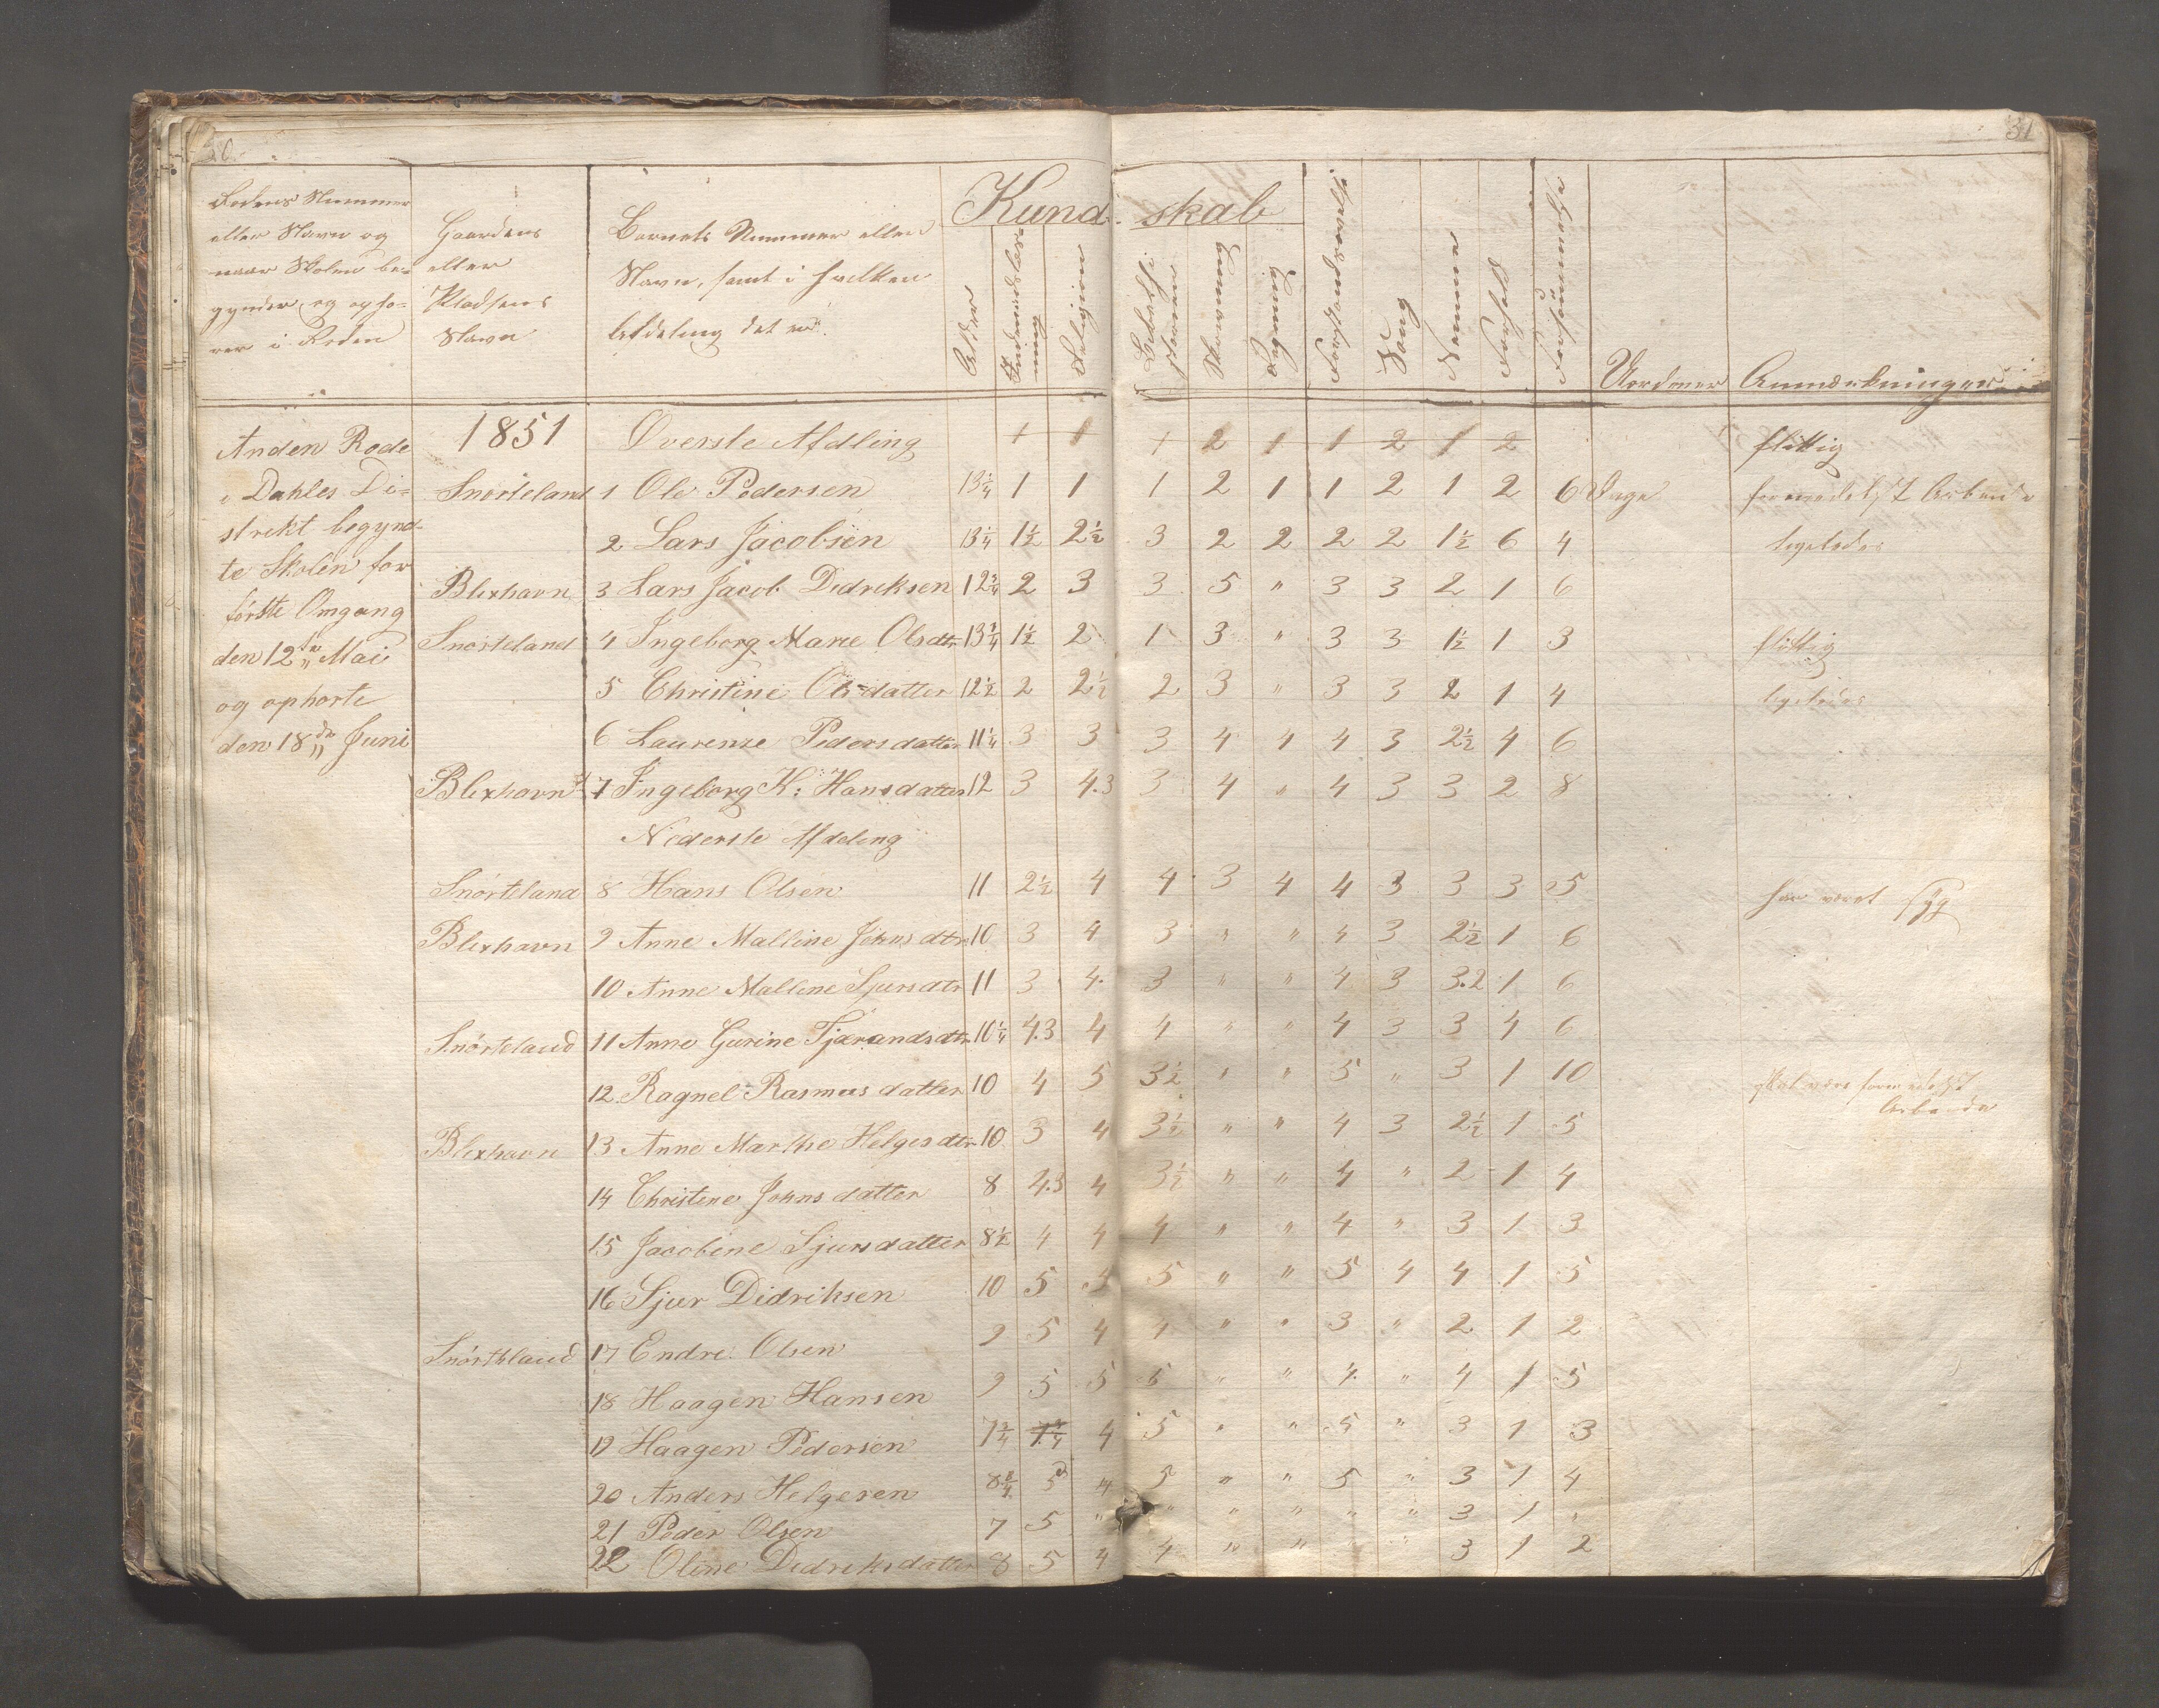 30
31
Rodens Nummer
eller Navn og
naar Skolen be-
gynder og opho-
rer i Roden
Gaardens
eller
Pladsens
Navn
Barnets Nummer eller
Navn, samt i hvilken
Afdeling det er.
Kund- skab
Alder
Indenadslæs-
ning
Religion
Skrivning
Regning
Sang
Nemme
Forhold
Forsømmelse
Anmærkninger
Anden Rode
i Dahles Di=
strikt begynd-
te Skolen for
første Omgang
den 12te Mai
og ophørte
den 18de Juni
1851 Øverste Afdling 1 1 1 2 1 1 2 1 2 flittig
Snørteland 1 Ole Pedersen 13¼ 1 1 1 2 1 1 2 1 2 6 Dage formedelst Arbeide
2 Lars Jacobsen 13¼ 1½ 2½ 3 2 2 2 2 1½ 6 4 ligeledes
Blixhavn 3 Lars Jacob Didriksen 12¾ 2 3 3 5 " 3 3 2 1 6
Snørteland 4 Ingeborg Marie Olsdtr 13¾ 1½ 2 1 3 " 3 3 1½ 1 3 flittig
5 Christine Olsdatter 12½ 2 2½ 2 3 " 3 3 2 1 4 ligeledes
6 Laurense Pedersdatter 11¼ 3 3 3 4 4 4 3 2½ 4 6
Blixhavn 7 Ingeborg K: Hansdatter 12 3 4.3 3 4 " 4 3 3 2 8
Nederste Afdeling
Snørteland 8 Hans Olsen 11 2½ 4 4 3 4 4 3 3 3 25 har været syg
Blixhavn 9 Anne Malline Johnsdtr 10 3 4 3 " " 4 3 2½ 1 6
10 Anne Malline Sjursdtr 11 3 4 3 " " 4 3 3.2 1 6
Snørteland 11 Anne Gurine Tjærandsdtr 10¼ 4.3 4 4 " " 4 3 3 4 6
12 Ragnel Rasmusdatter 10 4 5 3½ " " 5 " 3 1 10 formedelst
Arbeide
Blixhavn 13 Anne Marthe Helgesdtr 10 3 4 3½ " " 4 3 2½ 1 5
14 Christine Johnsdatter 8 4.3 4 3½ " " 4 " 2 1 4
15 Jacobine Sjursdatter 8½ 4 4 4 " " 4 " 3 1 3
16 Sjur Didriksen 10 5 5 5 " " 5 4 4 1 5
Snørteland 17 Endre Olsen 9 5 4 4 " " 3 " 2 1 2
18 Haagen Hansen 9 5 5 5 " " 4 " 4 1 5
19 Haagen Pedersen 7¾ 4 5 " " 5 " 3 1 3
20 Anders Helgesen 8¾ 5 " 5 " " 5 " 3 1 4
21 Peder Olsen 7 5 " " " " " " 3 1 "
22 Oline Didriksdatter 8 5 4 4 " " " " 3 1 2